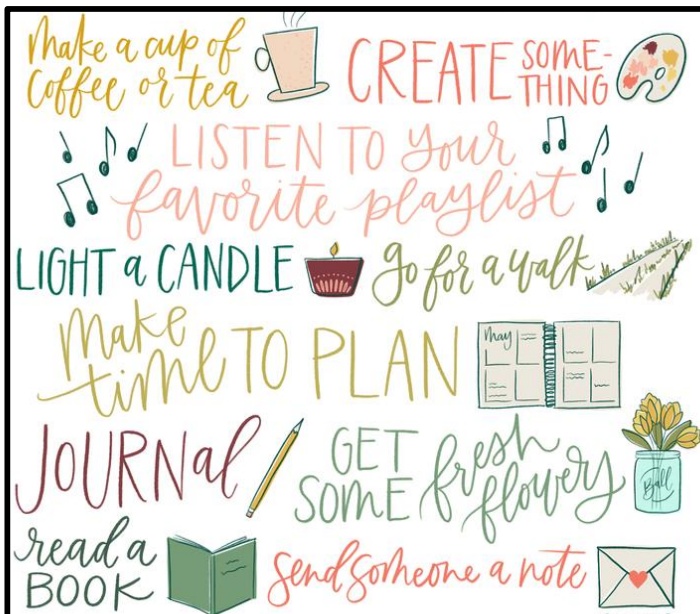 make a cup of
coffee or tea
CREATE SOME-
THING
LISTEN TO your
favorite playlist
LIGHT a CANDLE
go for a walk
make
time TO PLAN
May
JOURNal
GET
SOME fresh
flowers
Ball
read a
BOOK
send someone a note